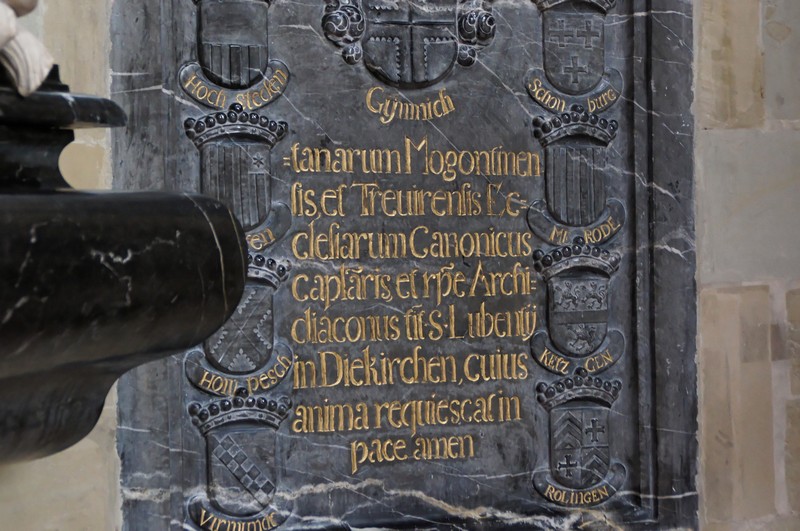 Hoch stecken
Gÿmnich
Schon burg
=tanarum Mogontinen
sis, et Treuirensis Ec=
clesiarum Canonicus
caplãris, et rp̃e Archi=
diaconus tit S. Lubentÿ
in Diekirchen, cuius
anima requiescat in
pace amen
en
ME RODE
Hom pesch
KETZ GEN
Virmimat
ROLINGEN